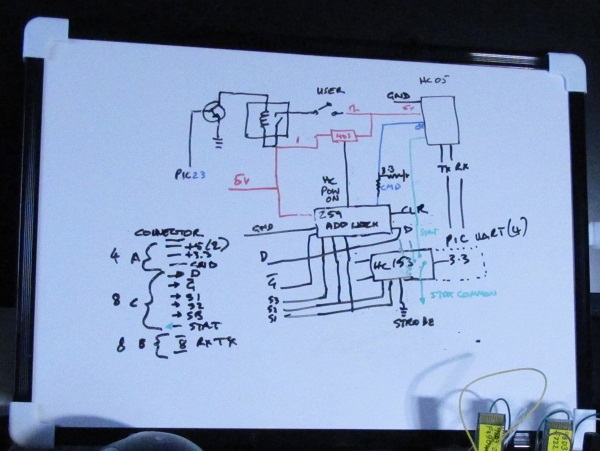 HC05
USER
GND
5V
PIC23
5V
HC
POW
ON
3.3
CMD
TX RX
259
ADD LATCH
CLR
D
STAT
PIC UART(4)
GND
D
G
HC153
3.3
S3
S2
S1
STROBE
STAT COMMON
CONNECTOR
4 A
+5(2)
+3.3
GND
8 C
D
G
S1
S2
S3
STAT
8 B 8 RX TX